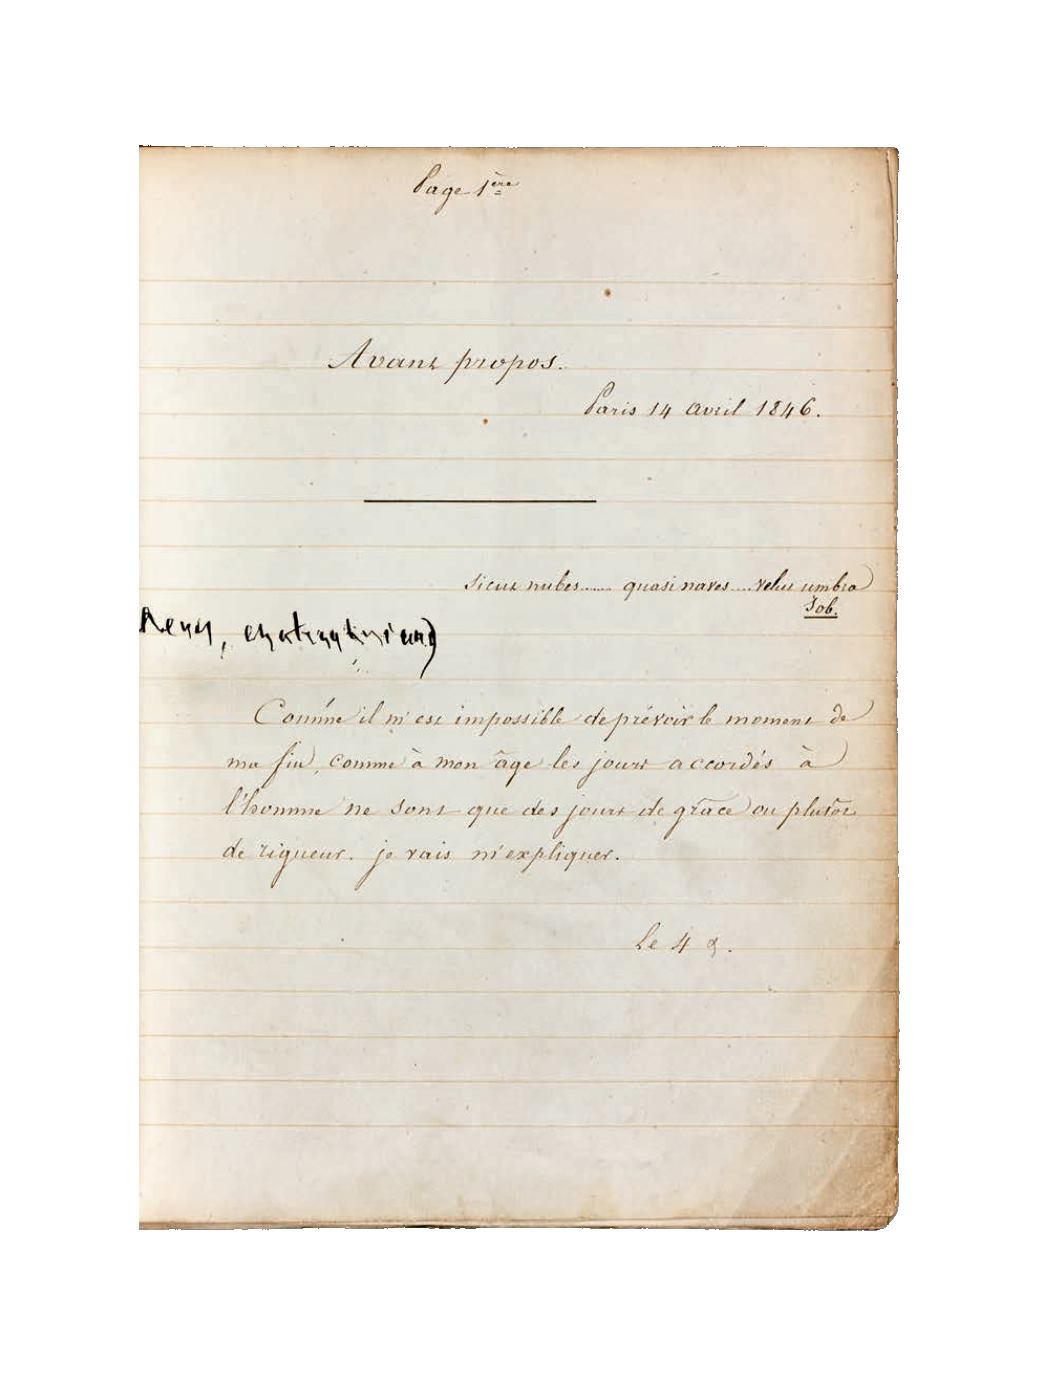 Page 1ère
Avant propos.
Paris 14 avril 1846.
Sicut nubes...... quasi naves.... velut umbra
Job.
chateaubriand
Comme il m'est impossible de prévoir le moment de
ma fin, comme à mon âge les jours accordés à
l'homme ne sont que des jours de grâce ou plutôt
de rigueur. je vais m'expliquer.
Le 4